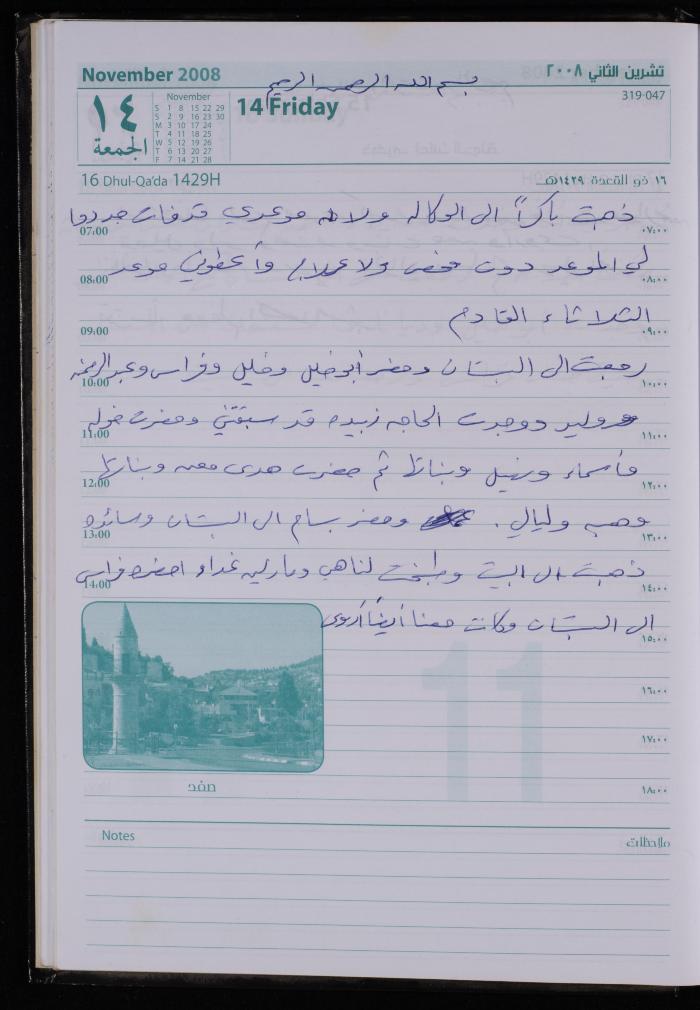 November 2008
تشرين الثاني ٢٠٠٨
بسم الله الرحمن الرحيم
١٤
الجمعة
November
S 1 8 15 22 29
S 2 9 16 23 30
M 3 10 17 24
T 4 11 18 25
W 5 12 19 26
T 6 13 20 27
F 7 14 21 28
14 Friday
319-047
16 Dhul-Qa'da 1429H
١٦ ذو القعدة ١٤٢٩هـ
ذهبت باكراً الى الوكاله ولانه موعدي قد فات جددوا
07:00 ٠٧:٠٠
لي الموعد دون فحص ولا علاج وأعطوني موعد
08:00 ٠٨:٠٠
الثلاثاء القادم
09:00 ٠٩:٠٠
رجعت الى البستان وحضر أبو خليل وخليل وفراس وعبد الرحمن
10:00 ١٠:٠٠
وليد ووجدت الحاجه زبيده قد سبقتني وحضرت خوله
11:00 ١١:٠٠
وأسماء وبناتها ثم حضرت هدى معن وبناتها
12:00 ١٢:٠٠
وهبه وليالي . وحضر بسام الى البستان وسائده
13:00 ١٣:٠٠
ذهبت الى البيت وطبخت لناهي ومارلين غداء احضره فراس
14:00 ١٤:٠٠
الى البستان وكانت معنا أيضاً أروى
١٥:٠٠
11
١٦:٠٠
١٧:٠٠
١٨:٠٠
صفد
Notes
ملاحظات